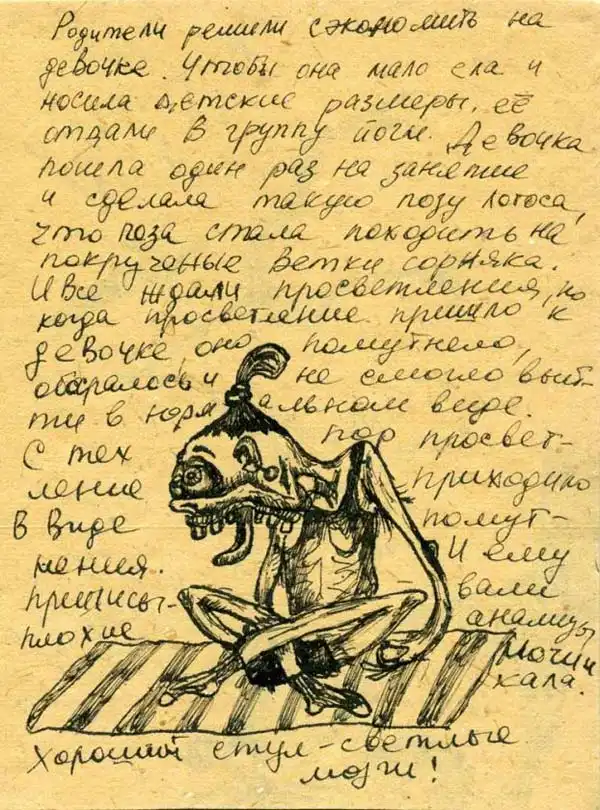 Родители решили сэкономить на
девочке. Чтобы она мало ела и
носила детские размеры, её
отдали в группу йоги. Девочка
пошла один раз на занятие
и сделала такую позу лотоса,
что поза стала походить на
покрученые ветки сорняка.
И все ждали просветления, но
когда просветление пришло к
девочке, оно помутнело,
обосралось и не смогло вый-
ти в нормальном виде.
С тех пор просвет-
ление приходило
в виде помут-
нения. И ему
приписы- вали
плохие анализы
мочи и
кала.
Хороший стул - светлые
мозги!